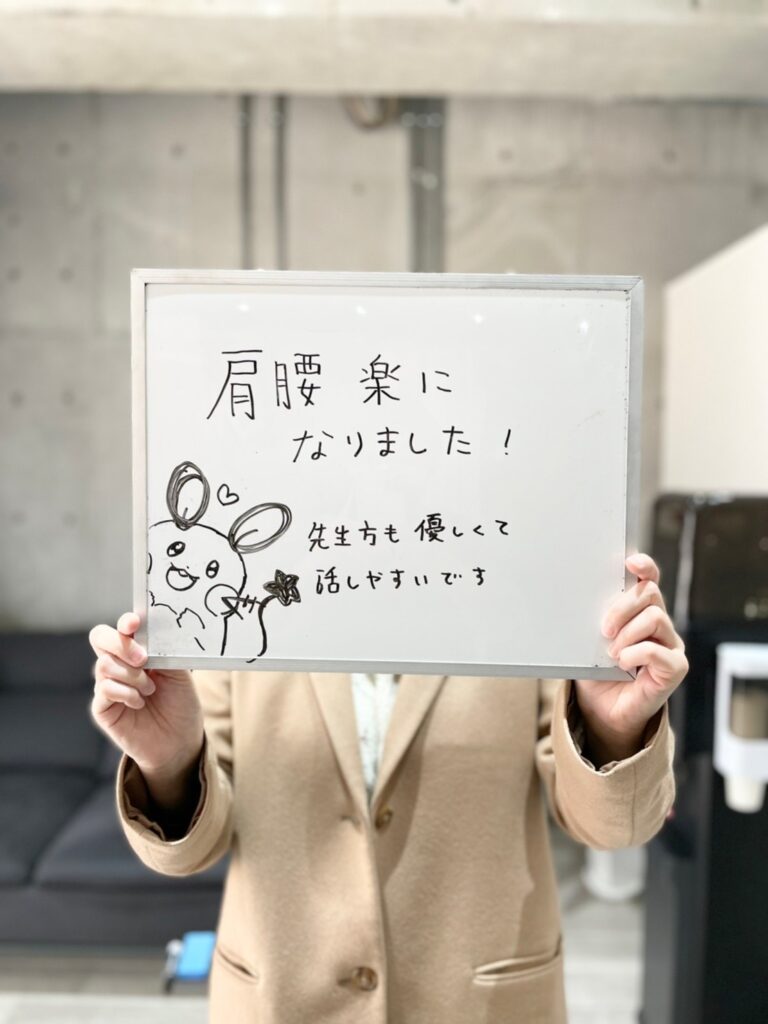 肩腰 楽に
なりました!
先生方も 優しくて
話しやすいです